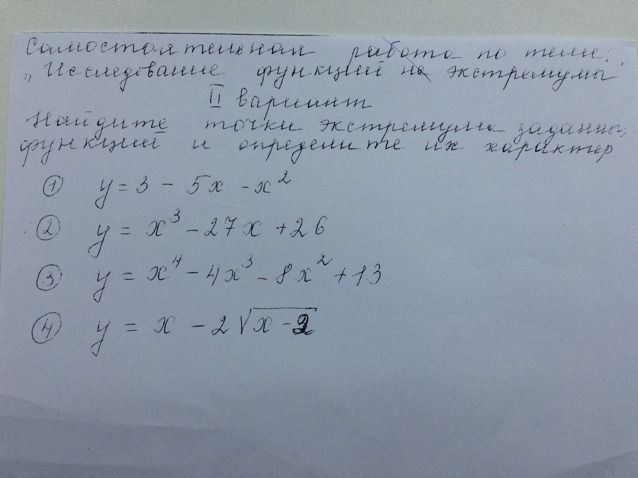 Самостоятельная работа по теме:
„Исследование функций на экстремумы
II вариант
Найдите точки экстремума заданных
функций и определите их характер
① y = 3 - 5x - x²
② y = x³ - 27x + 26
③ y = x⁴ - 4x³ - 8x² + 13
④ y = x - 2√x - 2